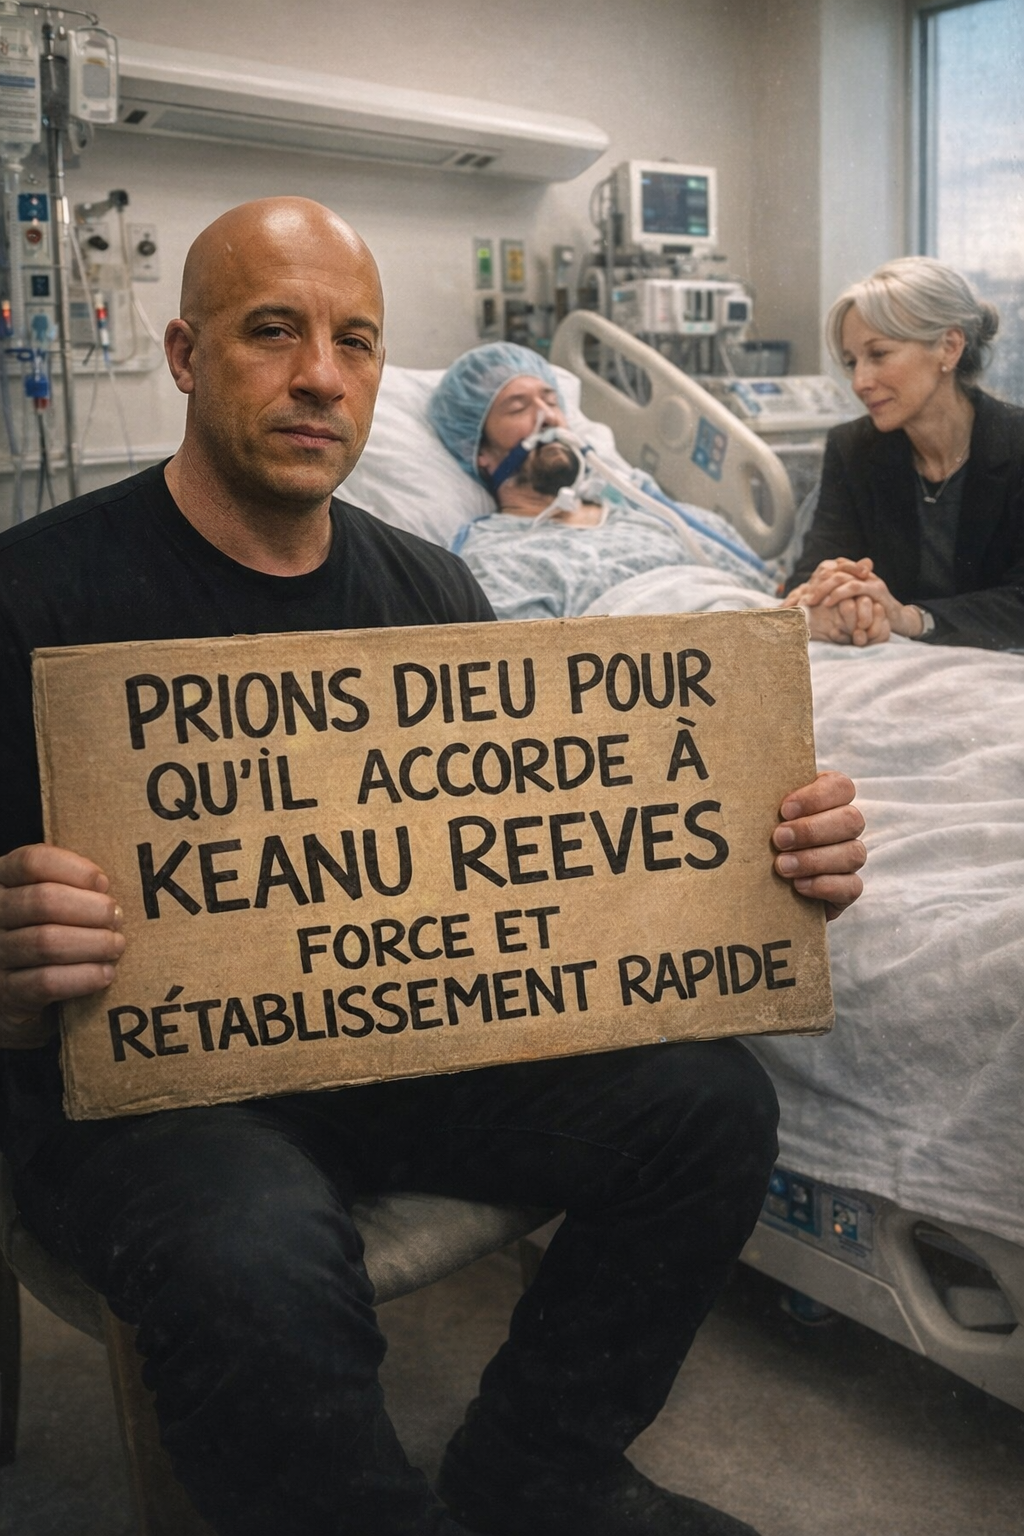 PRIONS DIEU POUR
QU'IL ACCORDE À
KEANU REEVES
FORCE ET
RÉTABLISSEMENT RAPIDE